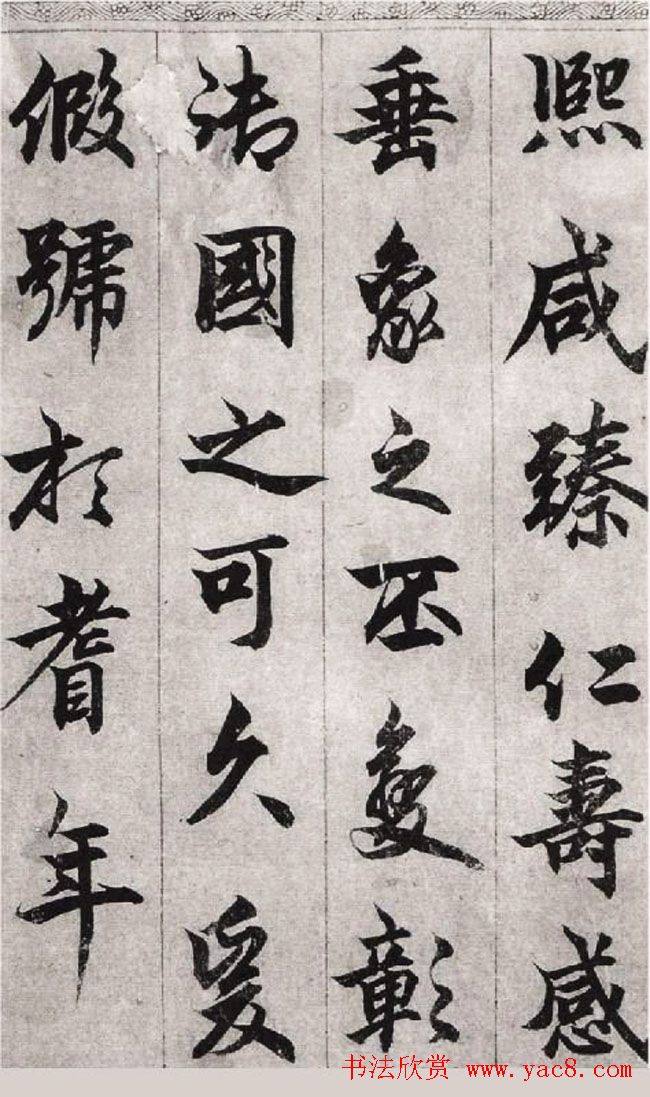 熙咸臻仁壽感
垂象之丕變彰
國之可久爰
假號於耆年
书法欣赏 www.yac8.com